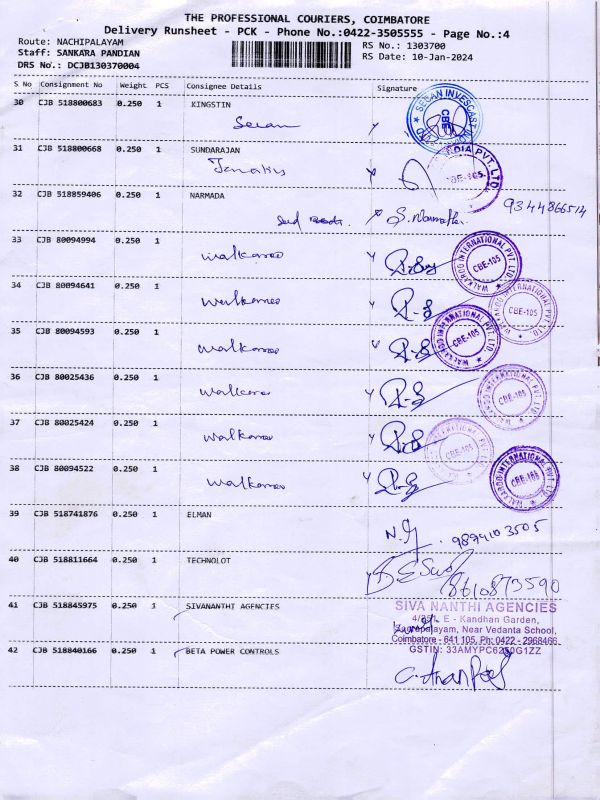 THE PROFESSIONAL COURIERS, COIMBATORE
Delivery Runsheet - PCK - Phone No.:0422-3505555 - Page No.:4
Route: NACHIPALAYAM
RS No.: 1303700
Staff: SANKARA PANDIAN
RS Date: 10-Jan-2024
DRS No.: DCJB130370004
S No Consignment No Weight PCS Consignee Details Signature
30 CJB 518800683 0.250 1 KINGSTIN
CBE
31 CJB 518800668 0.250 1 SUNDARAJAN
PVT. LTD.
CBE-105.
32 CJB 518859406 0.250 1 NARMADA
9344866514
33 CJB 80094994 0.250 1
walkaroo
WALKAROO INTERNATIONAL PVT. LTD.
CBE-105
34 CJB 80094641 0.250 1
walkaroo
CBE-105
35 CJB 80094593 0.250 1
walkaroo
WALKAROO INTERNATIONAL PVT. LTD.
CBE-105
36 CJB 80025436 0.250 1
walkaroo
WALKAROO INTERNATIONAL PVT. LTD.
CBE-105
37 CJB 80025424 0.250 1
walkaroo
CBE-105
38 CJB 80094522 0.250 1
walkaroo
WALKAROO INTERNATIONAL PVT. LTD.
CBE-105
39 CJB 518741876 0.250 1 ELMAN
40 CJB 518811664 0.250 1 TECHNOLOT
8610873590
41 CJB 518845975 0.250 1 SIVANANTHI AGENCIES
SIVA NANTHI AGENCIES
E - Kandhan Garden,
Near Vedanta School,
Coimbatore - 641 105, Ph: 0422 - 2968466
42 CJB 518840166 0.250 1 BETA POWER CONTROLS
GSTIN: 33AMYPC6250G1ZZ